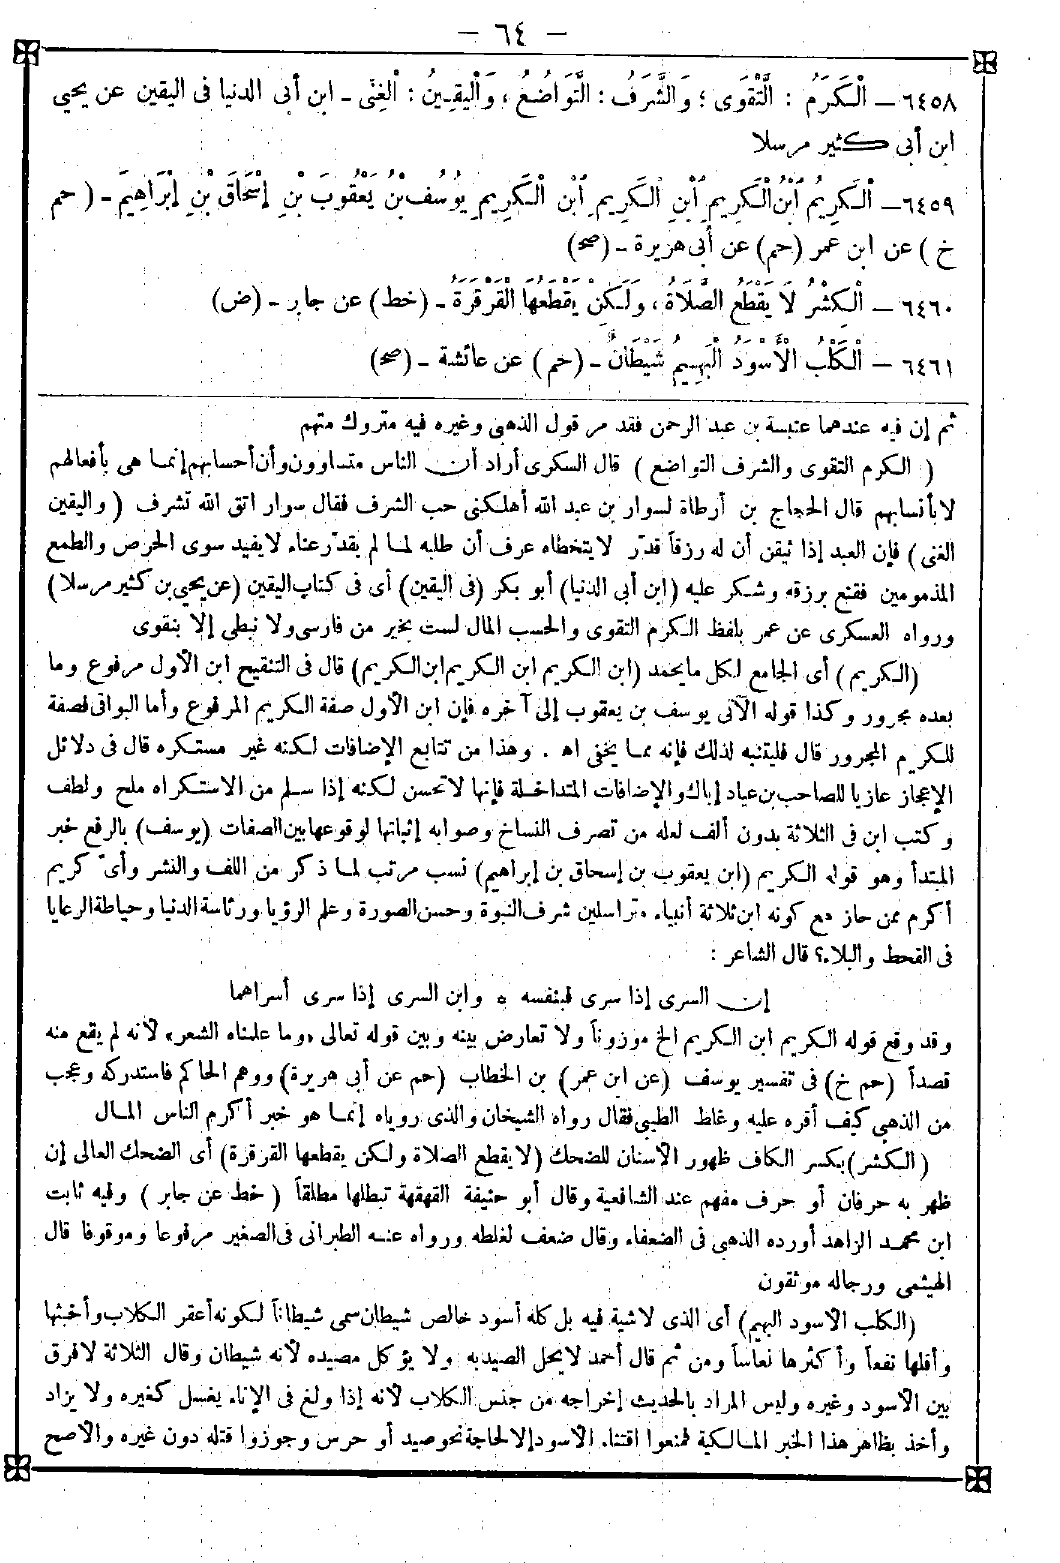 - ٦٤ -
٦٤٥٨ - اَلْكَرَمُ : التَّقْوَى ؛ وَالشَّرَفُ : التَّوَاضُعُ ، وَالْيَقِينُ : الْغِنَى - ابن أبى الدنيا فى اليقين عن يحيى
ابن أبى كثير مرسلا
٦٤٥٩ - اَلْكَرِيمُ ابْنُ الْكَرِيمِ ابْنِ الْكَرِيمِ ابْنِ الْكَرِيمِ يُوسُفُ بْنُ يَعْقُوبَ بْنِ إِسْحَاقَ بْنِ إِبْرَاهِيمَ - ( حم
خ ) عن ابن عمر (حم) عن أبى هريرة - (صح)
٦٤٦٠ - اَلْكِشْرُ لَا يَقْطَعُ الصَّلَاةَ ، وَلَكِنْ يَقْطَعُهَا الْقَرْقَرَةُ - (خط) عن جابر - (ض)
٦٤٦١ - اَلْكَلْبُ الْأَسْوَدُ الْبَهِيمُ شَيْطَانٌ - (حم) عن عائشة - (صح)
ثم إن فيه عندهما عنبسة بن عبد الرحمن فقد مر قول الذهبى وغيره فيه متروك متهم
( الكرم التقوى والشرف التواضع ) قال السكرى أراد أن الناس متساوون وأن أحسابهم إنما هى بأفعالهم
لا بأنسابهم قال الحجاج بن أرطاة لسوار بن عبد الله أهلكنى حب الشرف فقال سوار اتق الله تشرف ( واليقين
الغنى ) فإن العبد إذا تيقن أن له رزقاً قدّر لا يتخطاه عرف أن طلبه لما لم يقدّر عناء لا يفيد سوى الحرص والطمع
المذمومين فقنع برزقه وشكر عليه (ابن أبى الدنيا) أبو بكر (فى اليقين) أى فى كتاب اليقين (عن يحيى بن كثير مرسلا)
ورواه العسكرى عن عمر بلفظ الكرم التقوى والحسب المال لست بخير من فارسى ولا نبطى إلا بتقوى
(الكريم) أى الجامع لكل ما يحمد (ابن الكريم ابن الكريم ابن الكريم) قال فى التنقيح ابن الأول مرفوع وما
بعده مجرور وكذا قوله الآتى يوسف بن يعقوب إلى آخره فإن ابن الأول صفة الكريم المرفوع وأما البواقى لصفة
للكريم المجرور قال فليتنبه لذلك فإنه مما يخفى اه . وهذا من تتابع الإضافات لكنه غير مستكره قال فى دلائل
الإعجاز عازيا للصاحب بن عباد إياك والإضافات المتداخلة فإنها لا تحسن لكنه إذا سلم من الاستكراه ملح ولطف
وكتب ابن فى الثلاثة بدون ألف لعله من تصرف النساخ وصوابه إثباتها لوقوعها بين الصفات (يوسف) بالرفع خبر
المبتدأ وهو قوله الكريم (ابن يعقوب بن إسحاق بن إبراهيم) نسب مرتب لما ذكر من اللف والنشر وأىّ كريم
أكرم ممن حاز مع كونه ابن ثلاثة أنبياء متراسلين شرف النبوة وحسن الصورة وعلم الرؤيا ورئاسة الدنيا وحياطة الرعايا
فى القحط والبلاء؟ قال الشاعر :
إن السرى إذا سرى فبنفسه * وابن السرى إذا سرى أسراهما
وقد وقع قوله الكريم ابن الكريم الخ موزوناً ولا تعارض بينه وبين قوله تعالى «وما علمناه الشعر» لأنه لم يقع منه
قصداً (حم خ) فى تفسير يوسف (عن ابن عمر) بن الخطاب (حم عن أبى هريرة) ووهم الحاكم فاستدركه وعجب
من الذهبى كيف أقره عليه وغلط الطيبى فقال رواه الشيخان والذى روياه إنما هو خبر أكرم الناس المال
(الكشر) بكسر الكاف ظهور الأسنان للضحك (لا يقطع الصلاة ولكن يقطعها القرقرة) أى الضحك العالى إن
ظهر به حرفان أو حرف مفهم عند الشافعية وقال أبو حنيفة القهقهة تبطلها مطلقاً ( خط عن جابر ) وفيه ثابت
ابن محمد الزاهد أورده الذهبى فى الضعفاء وقال ضعف لغلطه ورواه عنه الطبرانى فى الصغير مرفوعا وموقوفا قال
الهيثمى ورجاله موثقون
(الكلب الأسود البهيم) أى الذى لاشية فيه بل كله أسود خالص شيطان سمى شيطاناً لكونه أعقر الكلاب وأخبثها
وأقلها نفعاً وأكثرها نعاساً ومن ثم قال أحمد لا يحل الصيد به ولا يؤكل مصيده لأنه شيطان وقال الثلاثة لا فرق
بين الأسود وغيره وليس المراد بالحديث إخراجه من جنس الكلاب لأنه إذا ولغ فى الإناء يغسل كغيره ولا يزاد
وأخذ بظاهر هذا الخبر المالكية فمنعوا اقتناء الأسود إلا لحاجة نحو صيد أو حرس وجوزوا قتله دون غيره والأصح